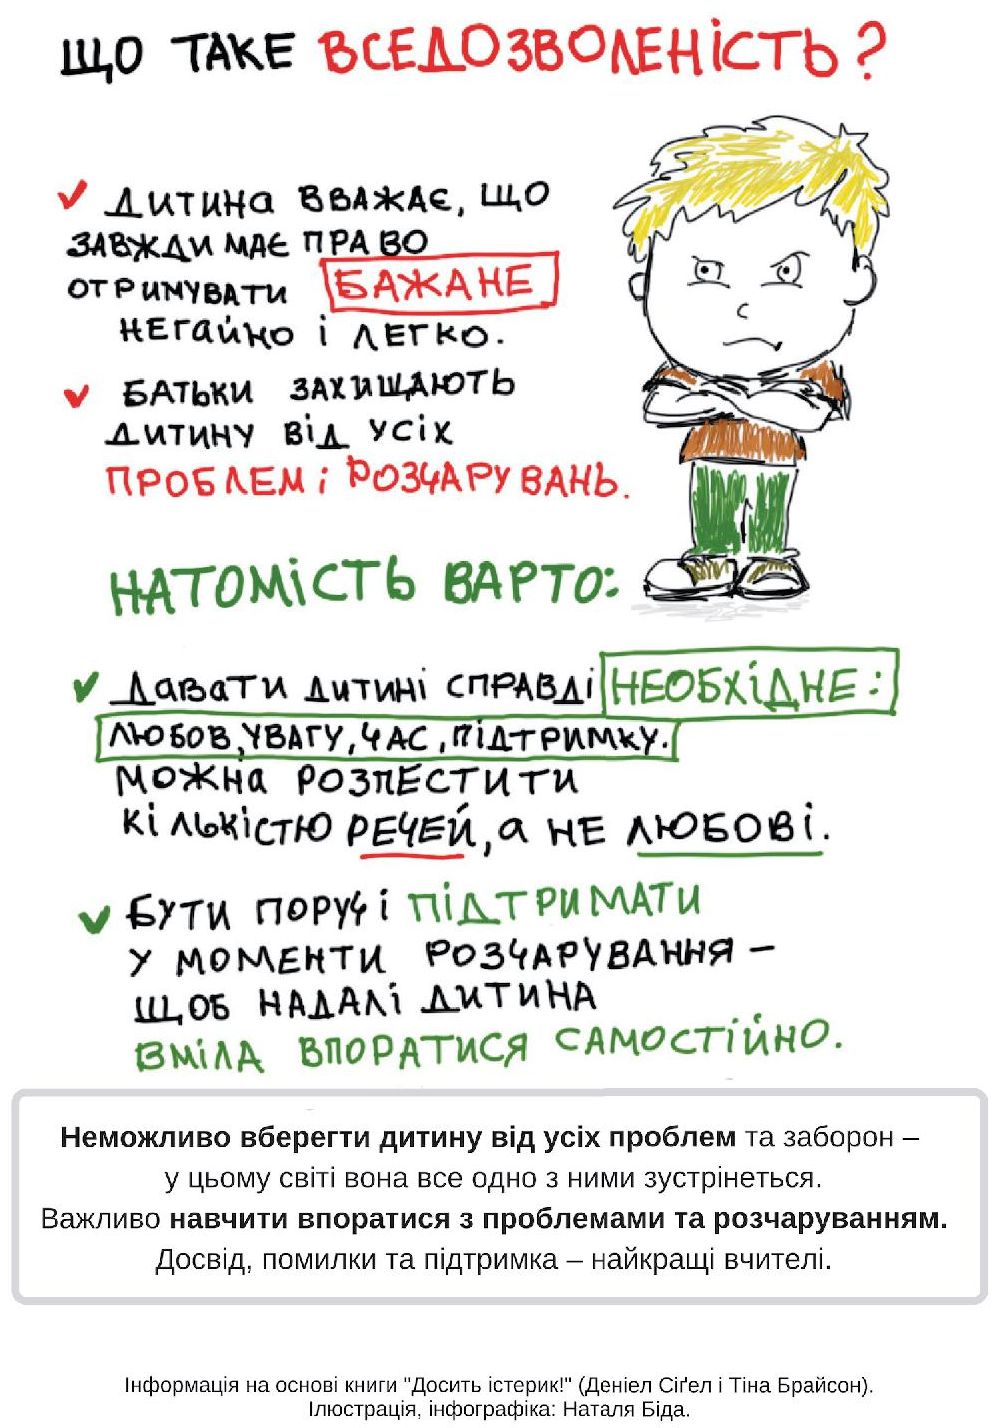 ЩО ТАКЕ ВСЕДОЗВОЛЕНІСТЬ?
ДИТИНА ВВАЖАЄ, ЩО
ЗАВЖДИ МАЄ ПРАВО
ОТРИМУВАТИ БАЖАНЕ
НЕГАЙНО І ЛЕГКО.
БАТЬКИ ЗАХИЩАЮТЬ
ДИТИНУ ВІД УСІХ
ПРОБЛЕМ І РОЗЧАРУВАНЬ.
НАТОМІСТЬ ВАРТО:
ДАВАТИ ДИТИНІ СПРАВДІ НЕОБХІДНЕ:
ЛЮБОВ, УВАГУ, ЧАС, ПІДТРИМКУ.
МОЖНА РОЗПЕСТИТИ
КІЛЬКІСТЮ РЕЧЕЙ, А НЕ ЛЮБОВІ.
БУТИ ПОРУЧ І ПІДТРИМАТИ
У МОМЕНТИ РОЗЧАРУВАННЯ –
ЩОБ НАДАЛІ ДИТИНА
ВМІЛА ВПОРАТИСЯ САМОСТІЙНО.
Неможливо вберегти дитину від усіх проблем та заборон –
у цьому світі вона все одно з ними зустрінеться.
Важливо навчити впоратися з проблемами та розчаруванням.
Досвід, помилки та підтримка – найкращі вчителі.
Інформація на основі книги "Досить істерик!" (Деніел Сіґел і Тіна Брайсон).
Ілюстрація, інфографіка: Наталя Біда.